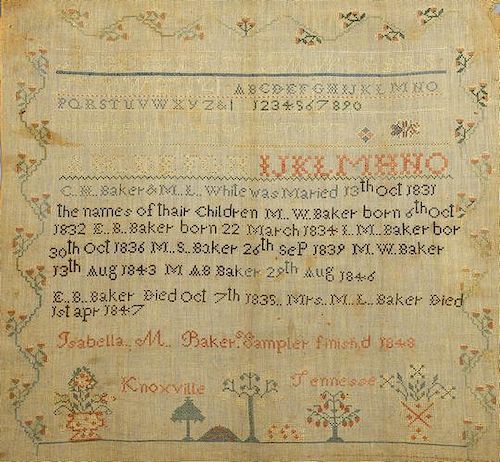 A B C D E F G H I J K L M N O
P Q R S T U V W X Y Z & 1 1 2 3 4 5 6 7 8 9 0
IJKLMHNO
C. H. Baker & M. L. White was Maried 13th Oct 1831
The names of thair Children M. W. Baker born 6th Oct
1832 E. B. Baker born 22 March 1834 I. M. Baker bor
30th Oct 1836 M. S. Baker 26th Sep 1839 M. W. Baker
13th Aug 1843 M AB Baker 29th Aug 1846
E. B. Baker Died Oct 7th 1835. Mrs. M. L. Baker Died
1st apr 1847
Isabella. M. Baker.s Sampler finish,d 1848
Knoxville Tennesse